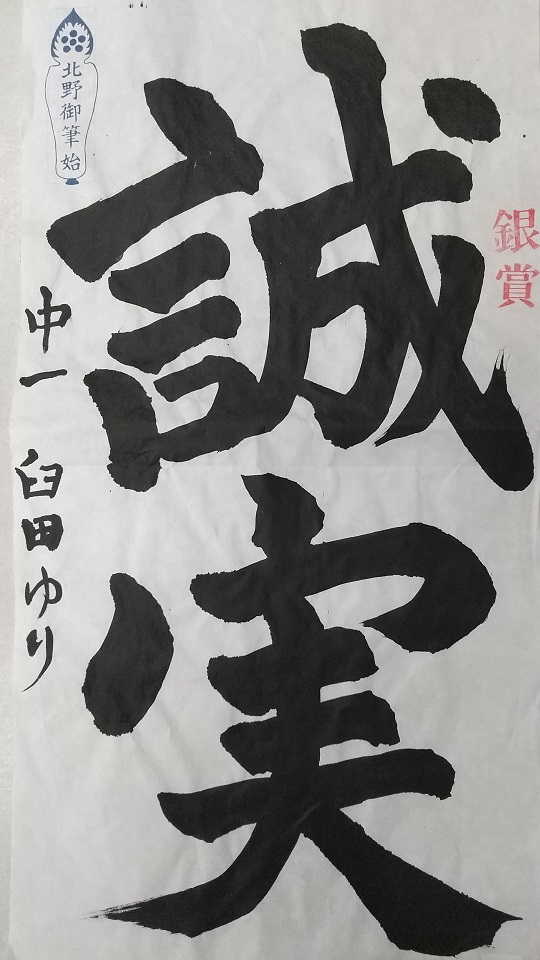 誠実
銀賞
北野御筆始
中一 臼田ゆり